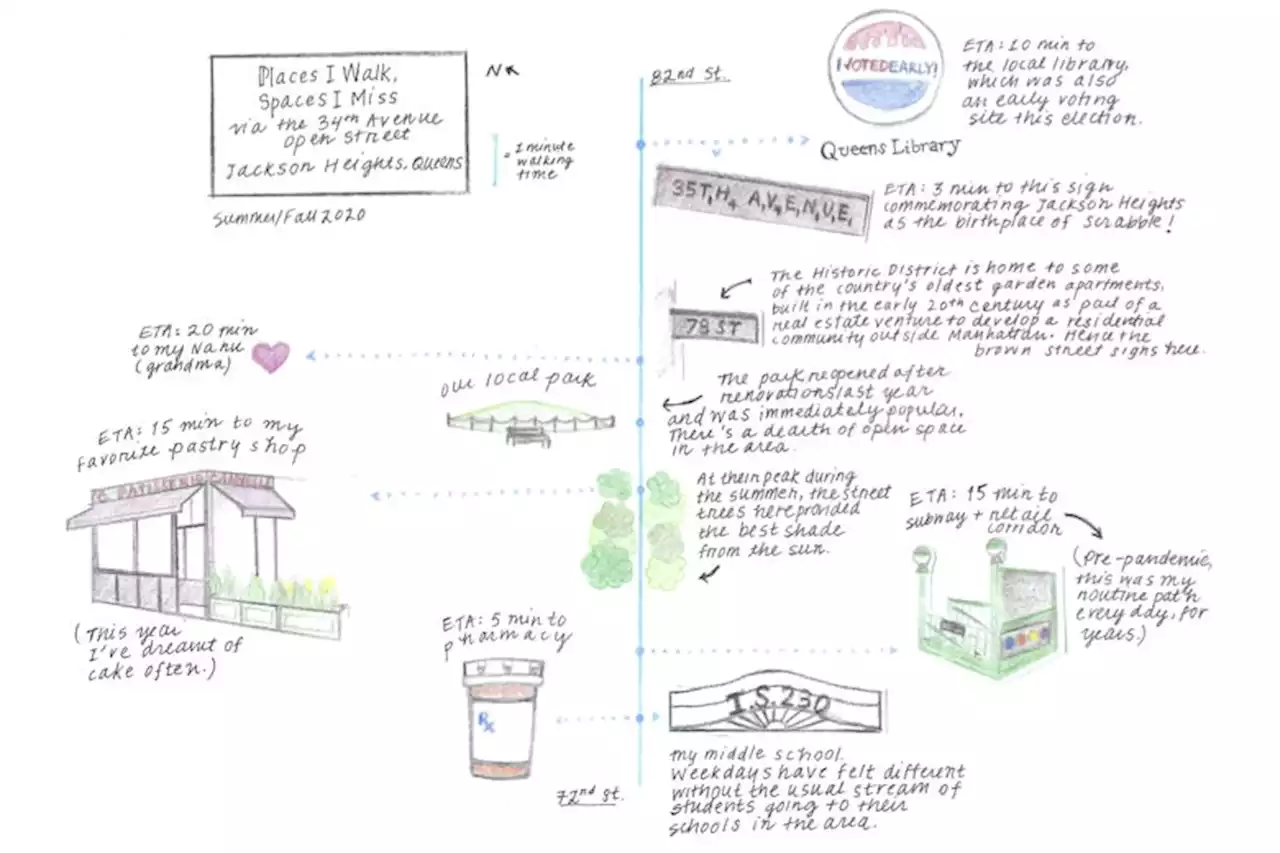 Places I Walk,
Spaces I Miss
via the 34th Avenue
open street
Jackson Heights, Queens
Summer/Fall 2020
N
= 1 minute
walking
time
82nd St.
I VOTED EARLY!
ETA: 10 min to
the local library,
which was also
an early voting
site this election.
Queens Library
35T₁H₄ A₁V₄E₁N₁U₁E₁
ETA: 3 min to this sign
commemorating Jackson Heights
as the birthplace of Scrabble!
The Historic District is home to some
of the country's oldest garden apartments,
built in the early 20th century as part of a
real estate venture to develop a residential
community outside Manhattan. Hence the
brown street signs here.
78 ST
ETA: 20 min
to my Nanu
(grandma)
our local park
The park reopened after
renovations last year
and was immediately popular.
There's a dearth of open space
in the area.
ETA: 15 min to my
favorite pastry shop
PATISSERIE
(This year
I've dreamt of
cake often.)
At their peak during
the summer, the street
trees here provided
the best shade
from the sun.
ETA: 15 min to
subway + retail
corridor
(Pre-pandemic,
this was my
routine path
every day, for
years.)
ETA: 5 min to
pharmacy
Rx
I.S. 230
my middle school.
Weekdays have felt different
without the usual stream of
students going to their
schools in the area.
72nd St.